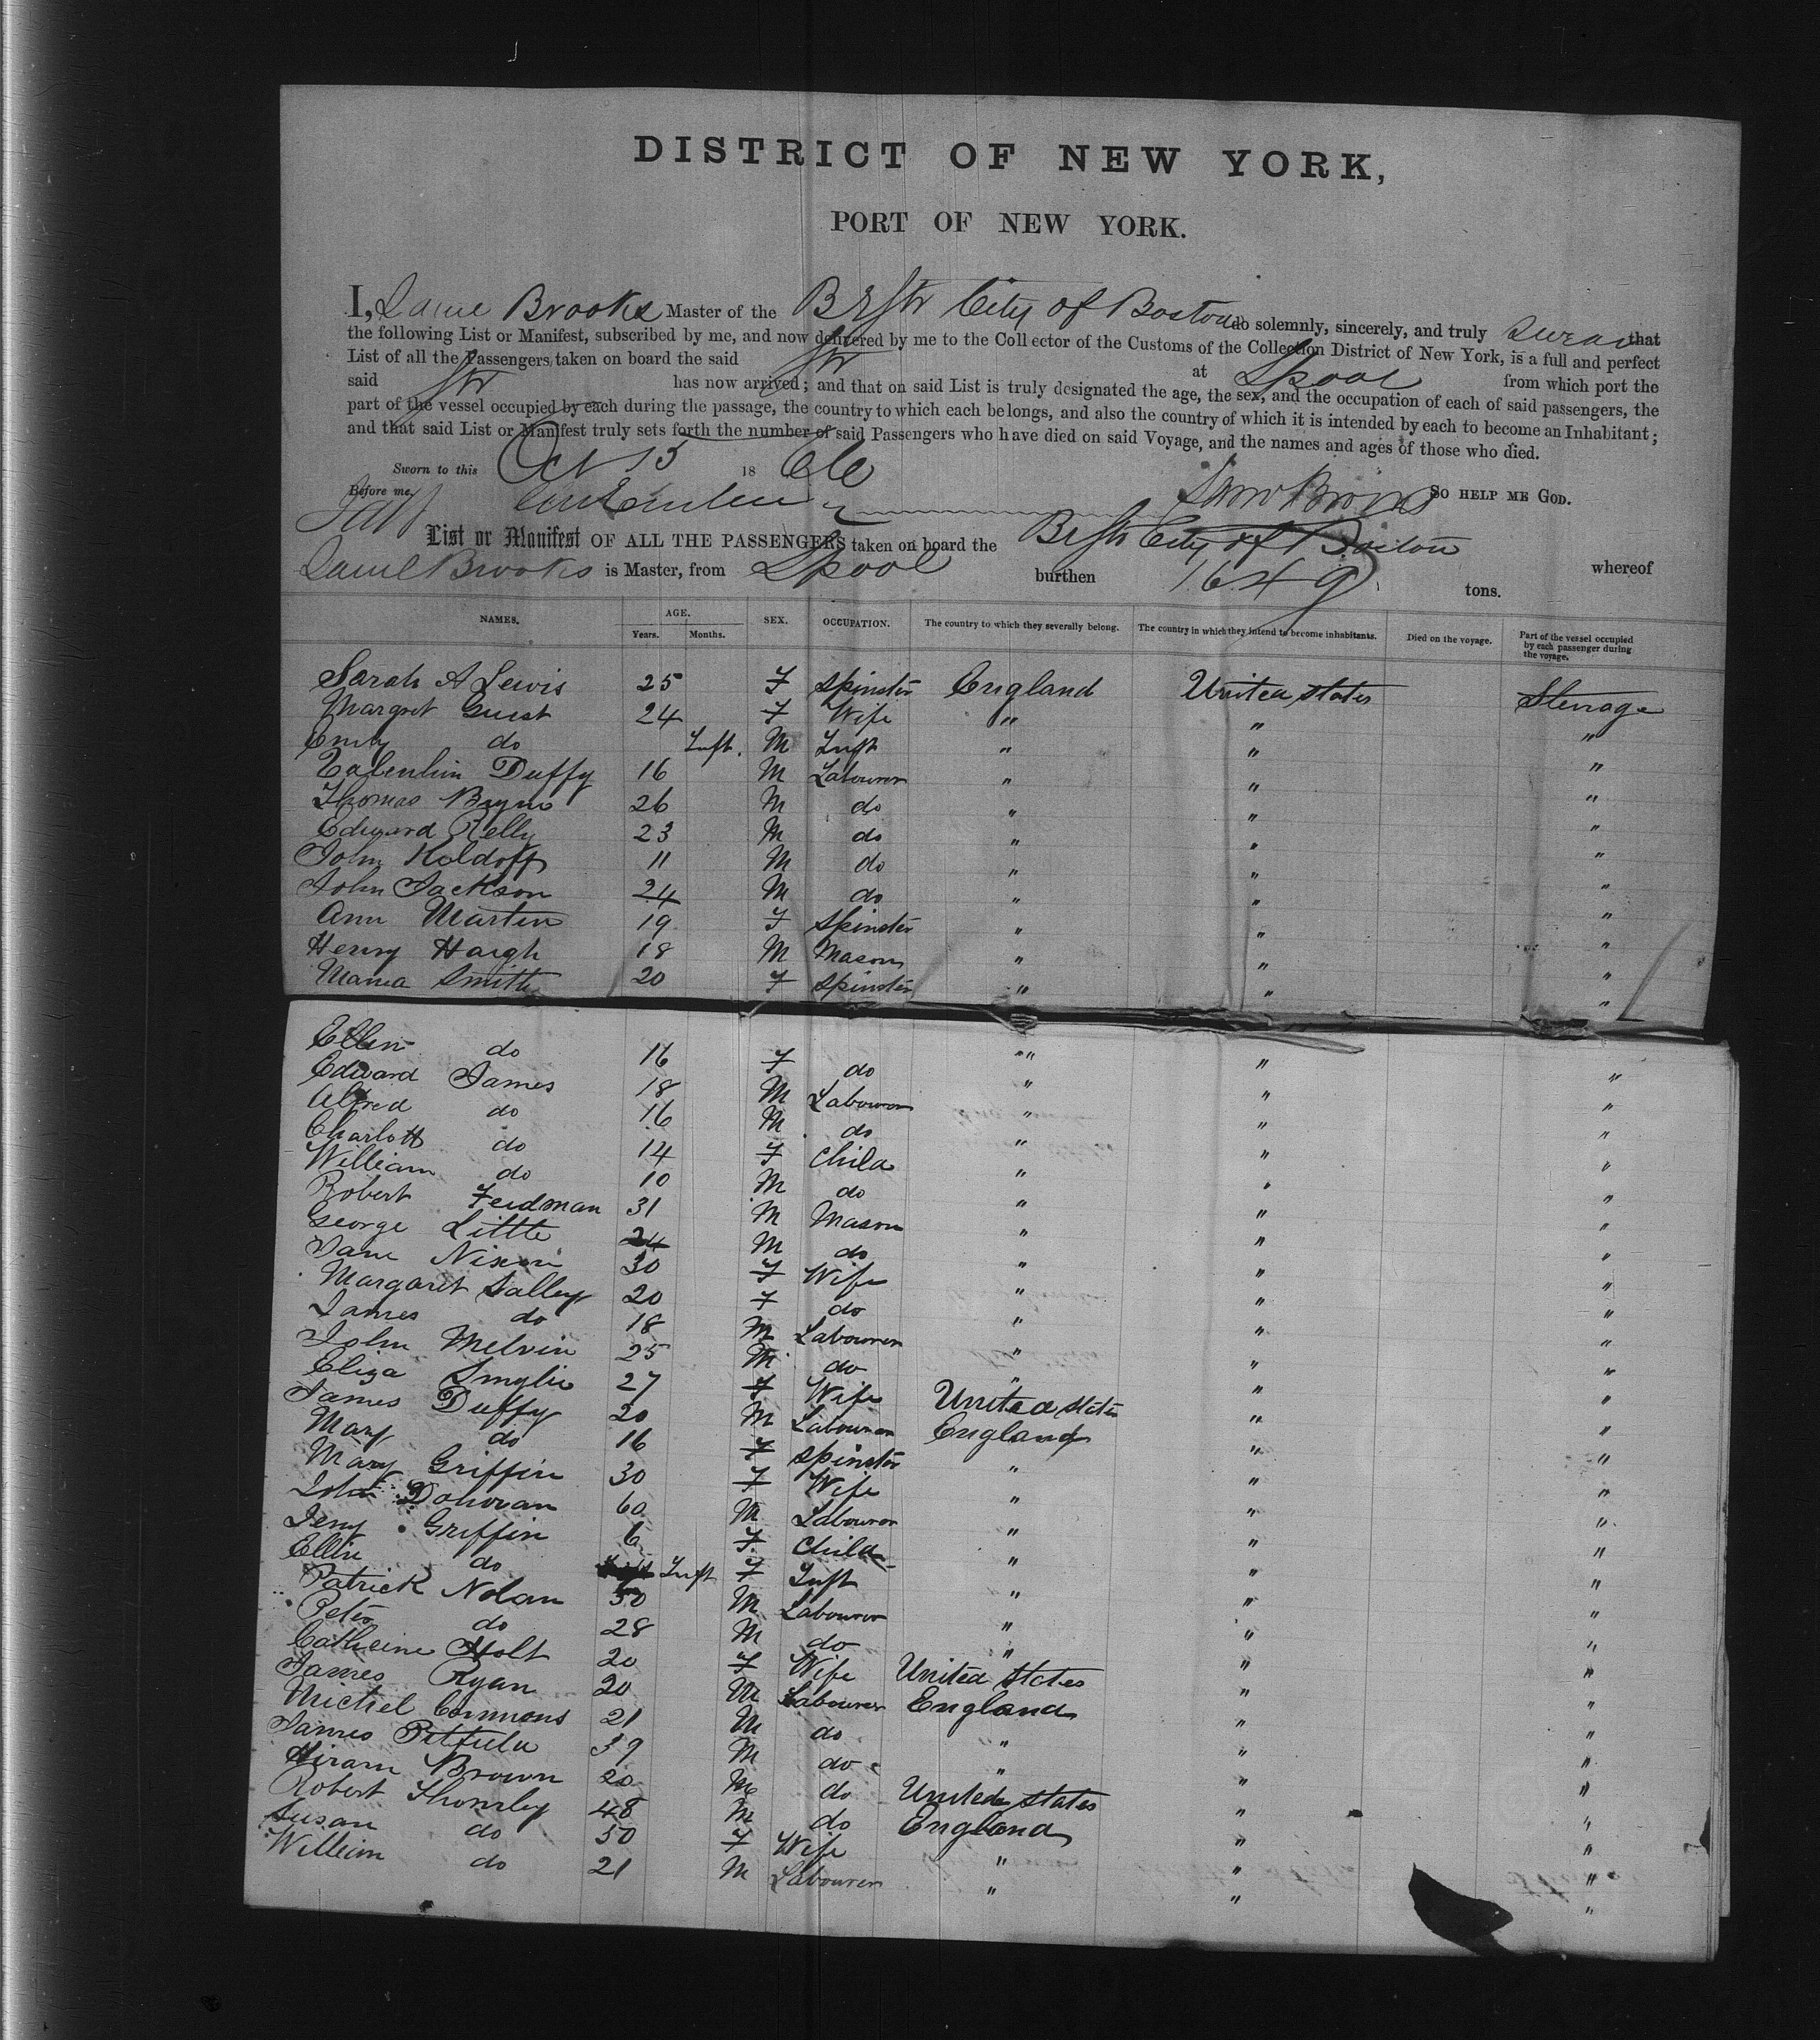 DISTRICT OF NEW YORK,
PORT OF NEW YORK.
I, Saml Brooks Master of the Br Str City of Boston do solemnly, sincerely, and truly swear that
the following List or Manifest, subscribed by me, and now delivered by me to the Collector of the Customs of the Collection District of New York, is a full and perfect
List of all the Passengers taken on board the said Str at Lpool from which port the
said Str has now arrived; and that on said List is truly designated the age, the sex, and the occupation of each of said passengers, the
part of the vessel occupied by each during the passage, the country to which each belongs, and also the country of which it is intended by each to become an Inhabitant;
and that said List or Manifest truly sets forth the number of said Passengers who have died on said Voyage, and the names and ages of those who died.
Sworn to this Oct 15 1866
Before me, Saml Brooks SO HELP ME GOD.
List or Manifest OF ALL THE PASSENGERS taken on board the Br Str City of Boston whereof
Saml Brooks is Master, from Lpool burthen 1649 tons.
NAMES. AGE. Years. Months. SEX. OCCUPATION. The country to which they severally belong. The country in which they intend to become inhabitants. Died on the voyage. Part of the vessel occupied by each passenger during the voyage.
Sarah A Lewis 25 F Spinster England United States Sterrage
Margret Guest 24 F Wife " " "
Emily do Inft. M Inft " " "
Valentin Duffy 16 M Labourer " " "
Thomas Bryne 26 M do " " "
Edward Relly 23 M do " " "
John Koldoff 11 M do " " "
John Jackson 24 M do " " "
Ann Martin 19 F Spinster " " "
Henry Haigh 18 M Mason " " "
Maria Smith 20 F Spinster " " "
Ellen do 16 F do " " "
Edward James 18 M Labourer " " "
Alfred do 16 M do " " "
Charlott do 14 F Child " " "
William do 10 M do " " "
Robert Feidman 31 M Mason " " "
George Little 24 M do " " "
Jane Nixon 30 F Wife " " "
Margaret Salley 20 F do " " "
James do 18 M Labourer " " "
John Melvin 25 M do " " "
Eliza Smylie 27 F Wife United States " "
James Duffy 20 M Labourer England " "
Mary do 16 F Spinster " " "
Mary Griffin 30 F Wife " " "
John Donovan 60 M Labourer " " "
Jeny Griffin 6 F Child " " "
Ellin do Inft F Inft " " "
Patrick Nolan 30 M Labourer " " "
Peter do 28 M do " " "
Catheine Holt 20 F Wife United States " "
James Ryan 20 M Labourer England " "
Michel Commons 21 M do " " "
James 39 M do " " "
Hiram Brown 20 M do United States " "
Robert Thornley 48 M do England " "
Susan do 50 F Wife " " "
William do 21 M Labourer " " "